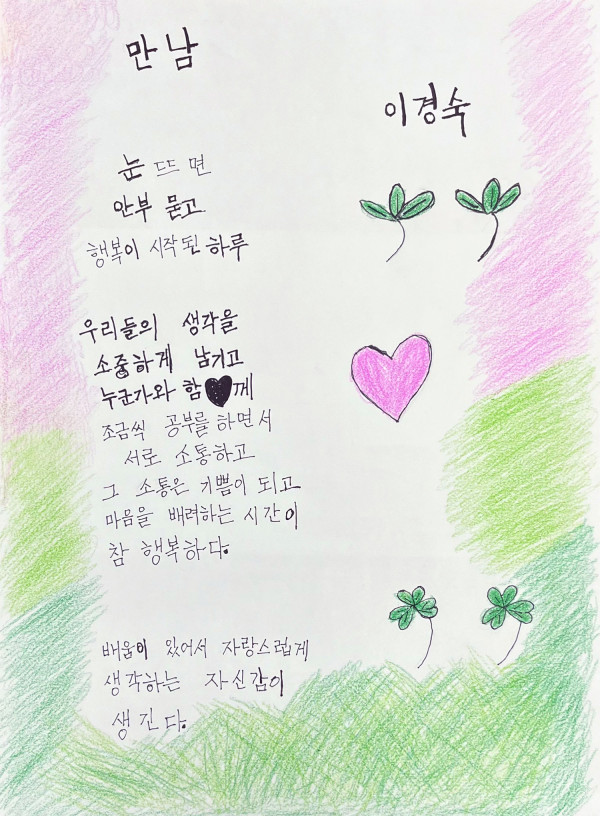 만남
이경숙
눈 뜨면
안부 묻고
행복이 시작된 하루
우리들의 생각을
소중하게 남기고
누군가와 함께
조금씩 공부를 하면서
서로 소통하고
그 소통은 기쁨이 되고
마음을 배려하는 시간이
참 행복하다.
배움이 있어서 자랑스럽게
생각하는 자신감이
생긴다.